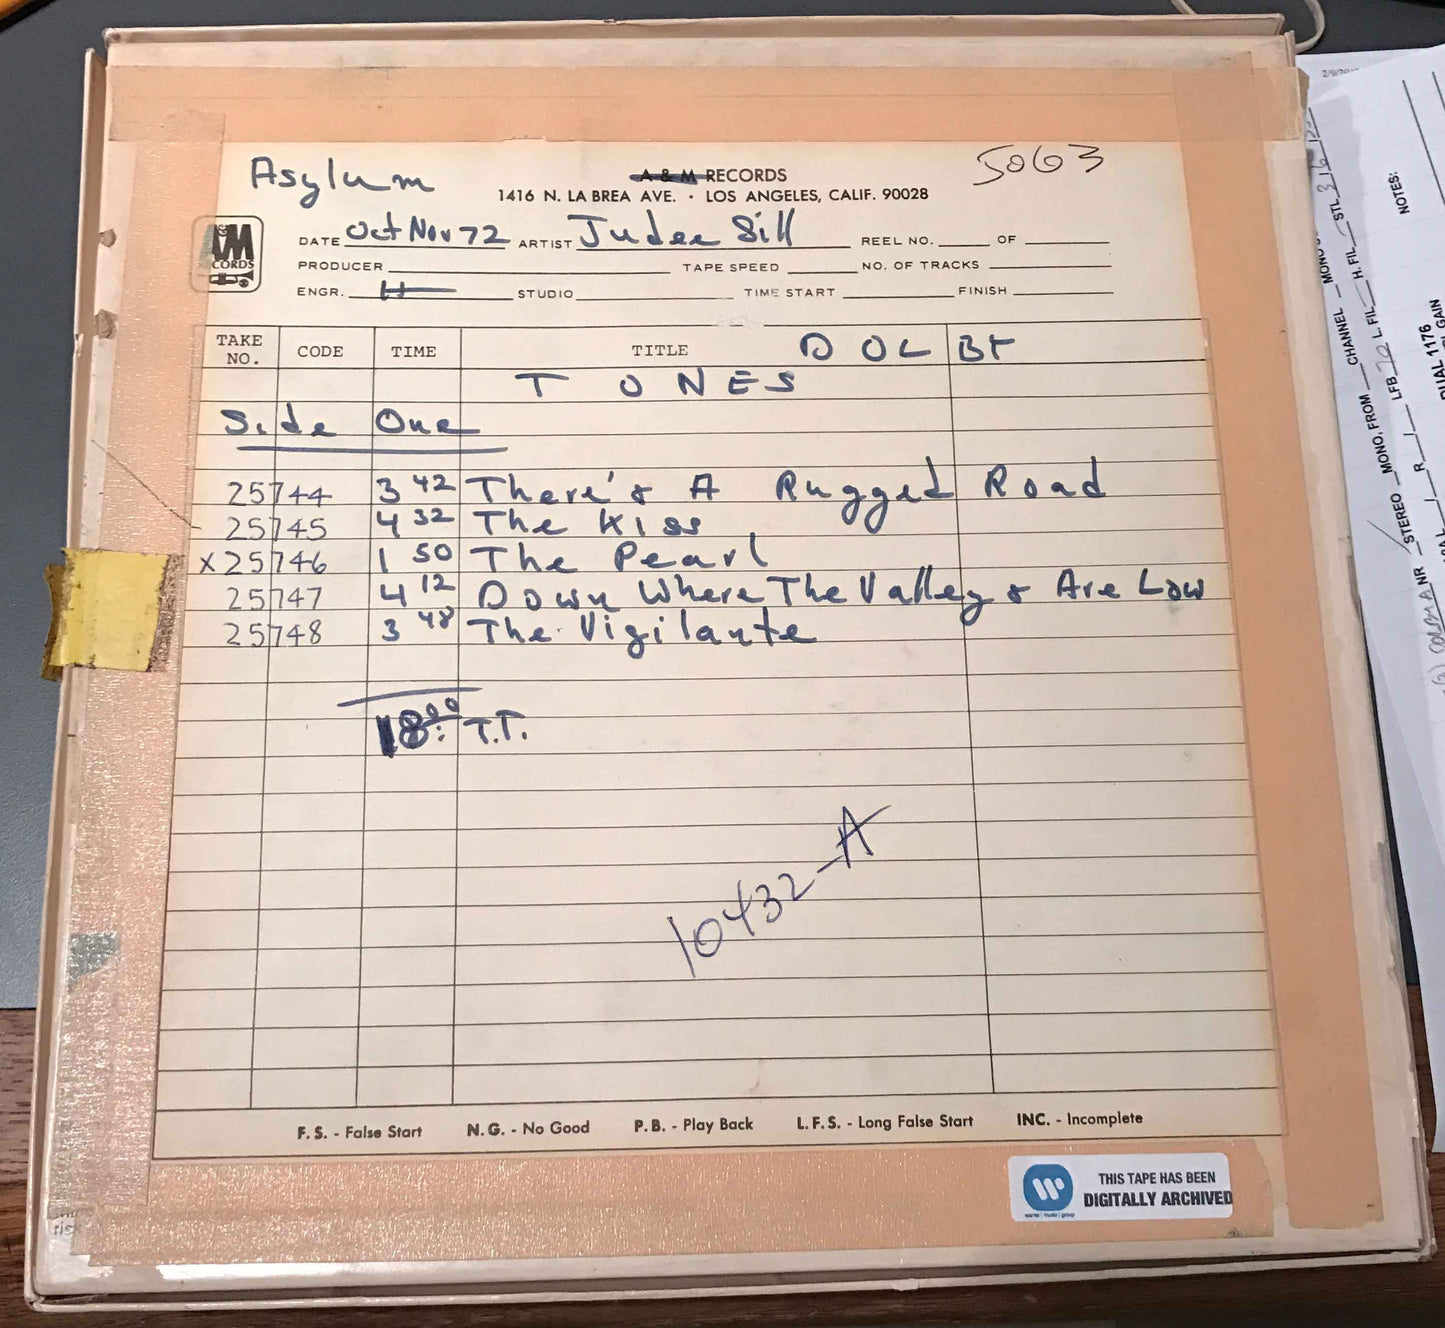 Asylum
5063
A & M RECORDS
1416 N. LA BREA AVE. • LOS ANGELES, CALIF. 90028
A&M
RECORDS
DATE Oct Nov 72 ARTIST Judee Sill REEL NO. OF
PRODUCER TAPE SPEED NO. OF TRACKS
ENGR. STUDIO TIME START FINISH
TAKE NO. CODE TIME TITLE DOLBY
TONES
Side One
25744 3 42 There's A Rugged Road
25745 4 32 The Kiss
x 25746 1 50 The Pearl
25747 4 12 Down Where The Valleys Are Low
25748 3 48 The Vigilante
18:00 T.T.
10432-A
F. S. - False Start N. G. - No Good P. B. - Play Back L. F. S. - Long False Start INC. - Incomplete
THIS TAPE HAS BEEN
DIGITALLY ARCHIVED
warner music group
NOTES:
MONO, FROM CHANNEL
STEREO
LFB 70 L. FIL H. FIL STL
DUAL 1176
GAIN
L R